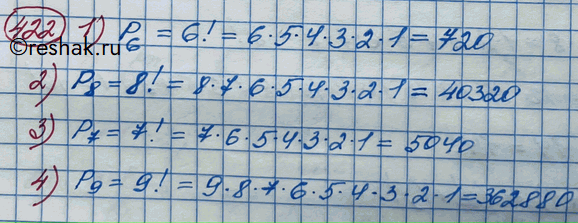 422 1) P₆ = 6! = 6·5·4·3·2·1 = 720
©reshak.ru
2) P₈ = 8! = 8·7·6·5·4·3·2·1 = 40320
3) P₇ = 7! = 7·6·5·4·3·2·1 = 5040
4) P₉ = 9! = 9·8·7·6·5·4·3·2·1 = 362880